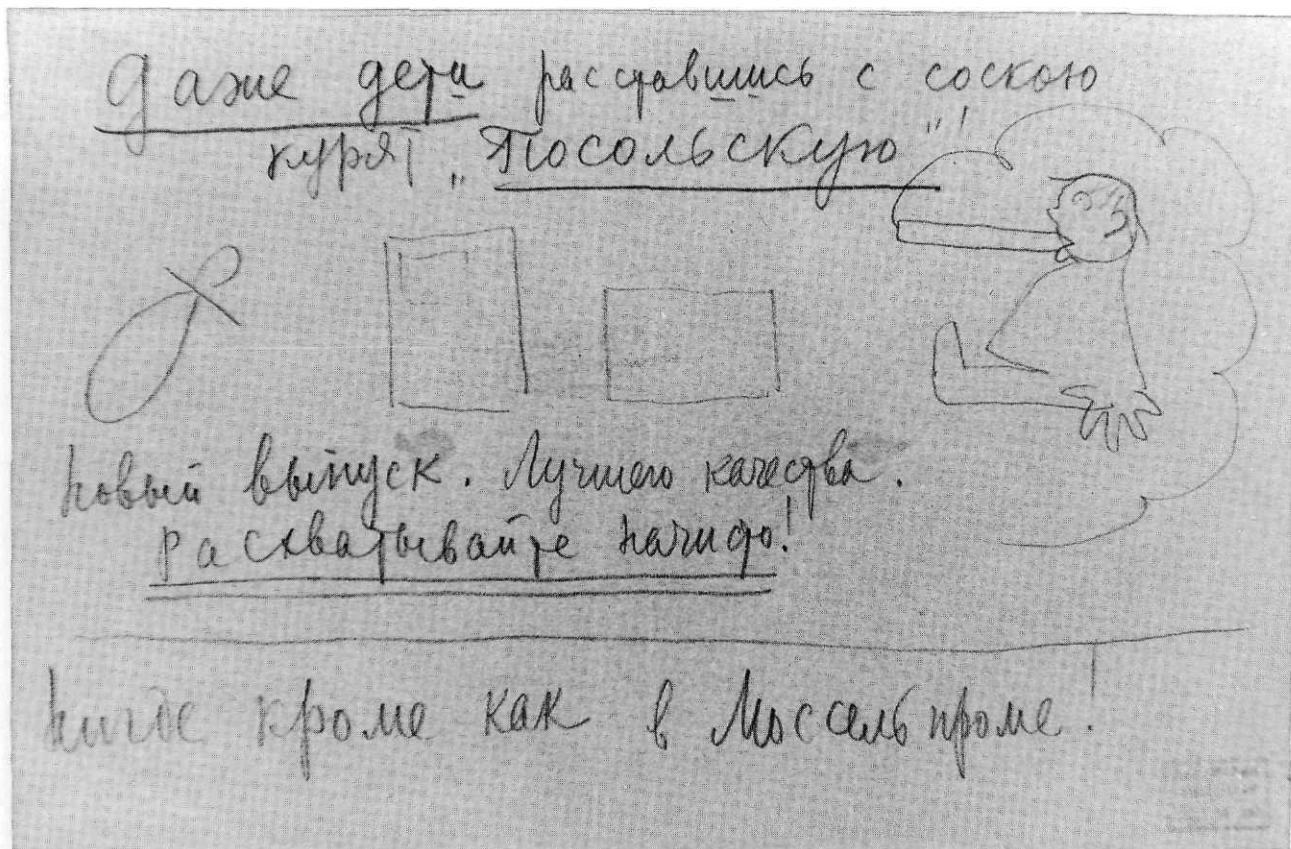 Даже дети расставшись с соскою
курят „Посольскую"!
Новый выпуск. Лучшего качества.
Расхватывайте начисто!
Нигде кроме как в Моссельпроме!